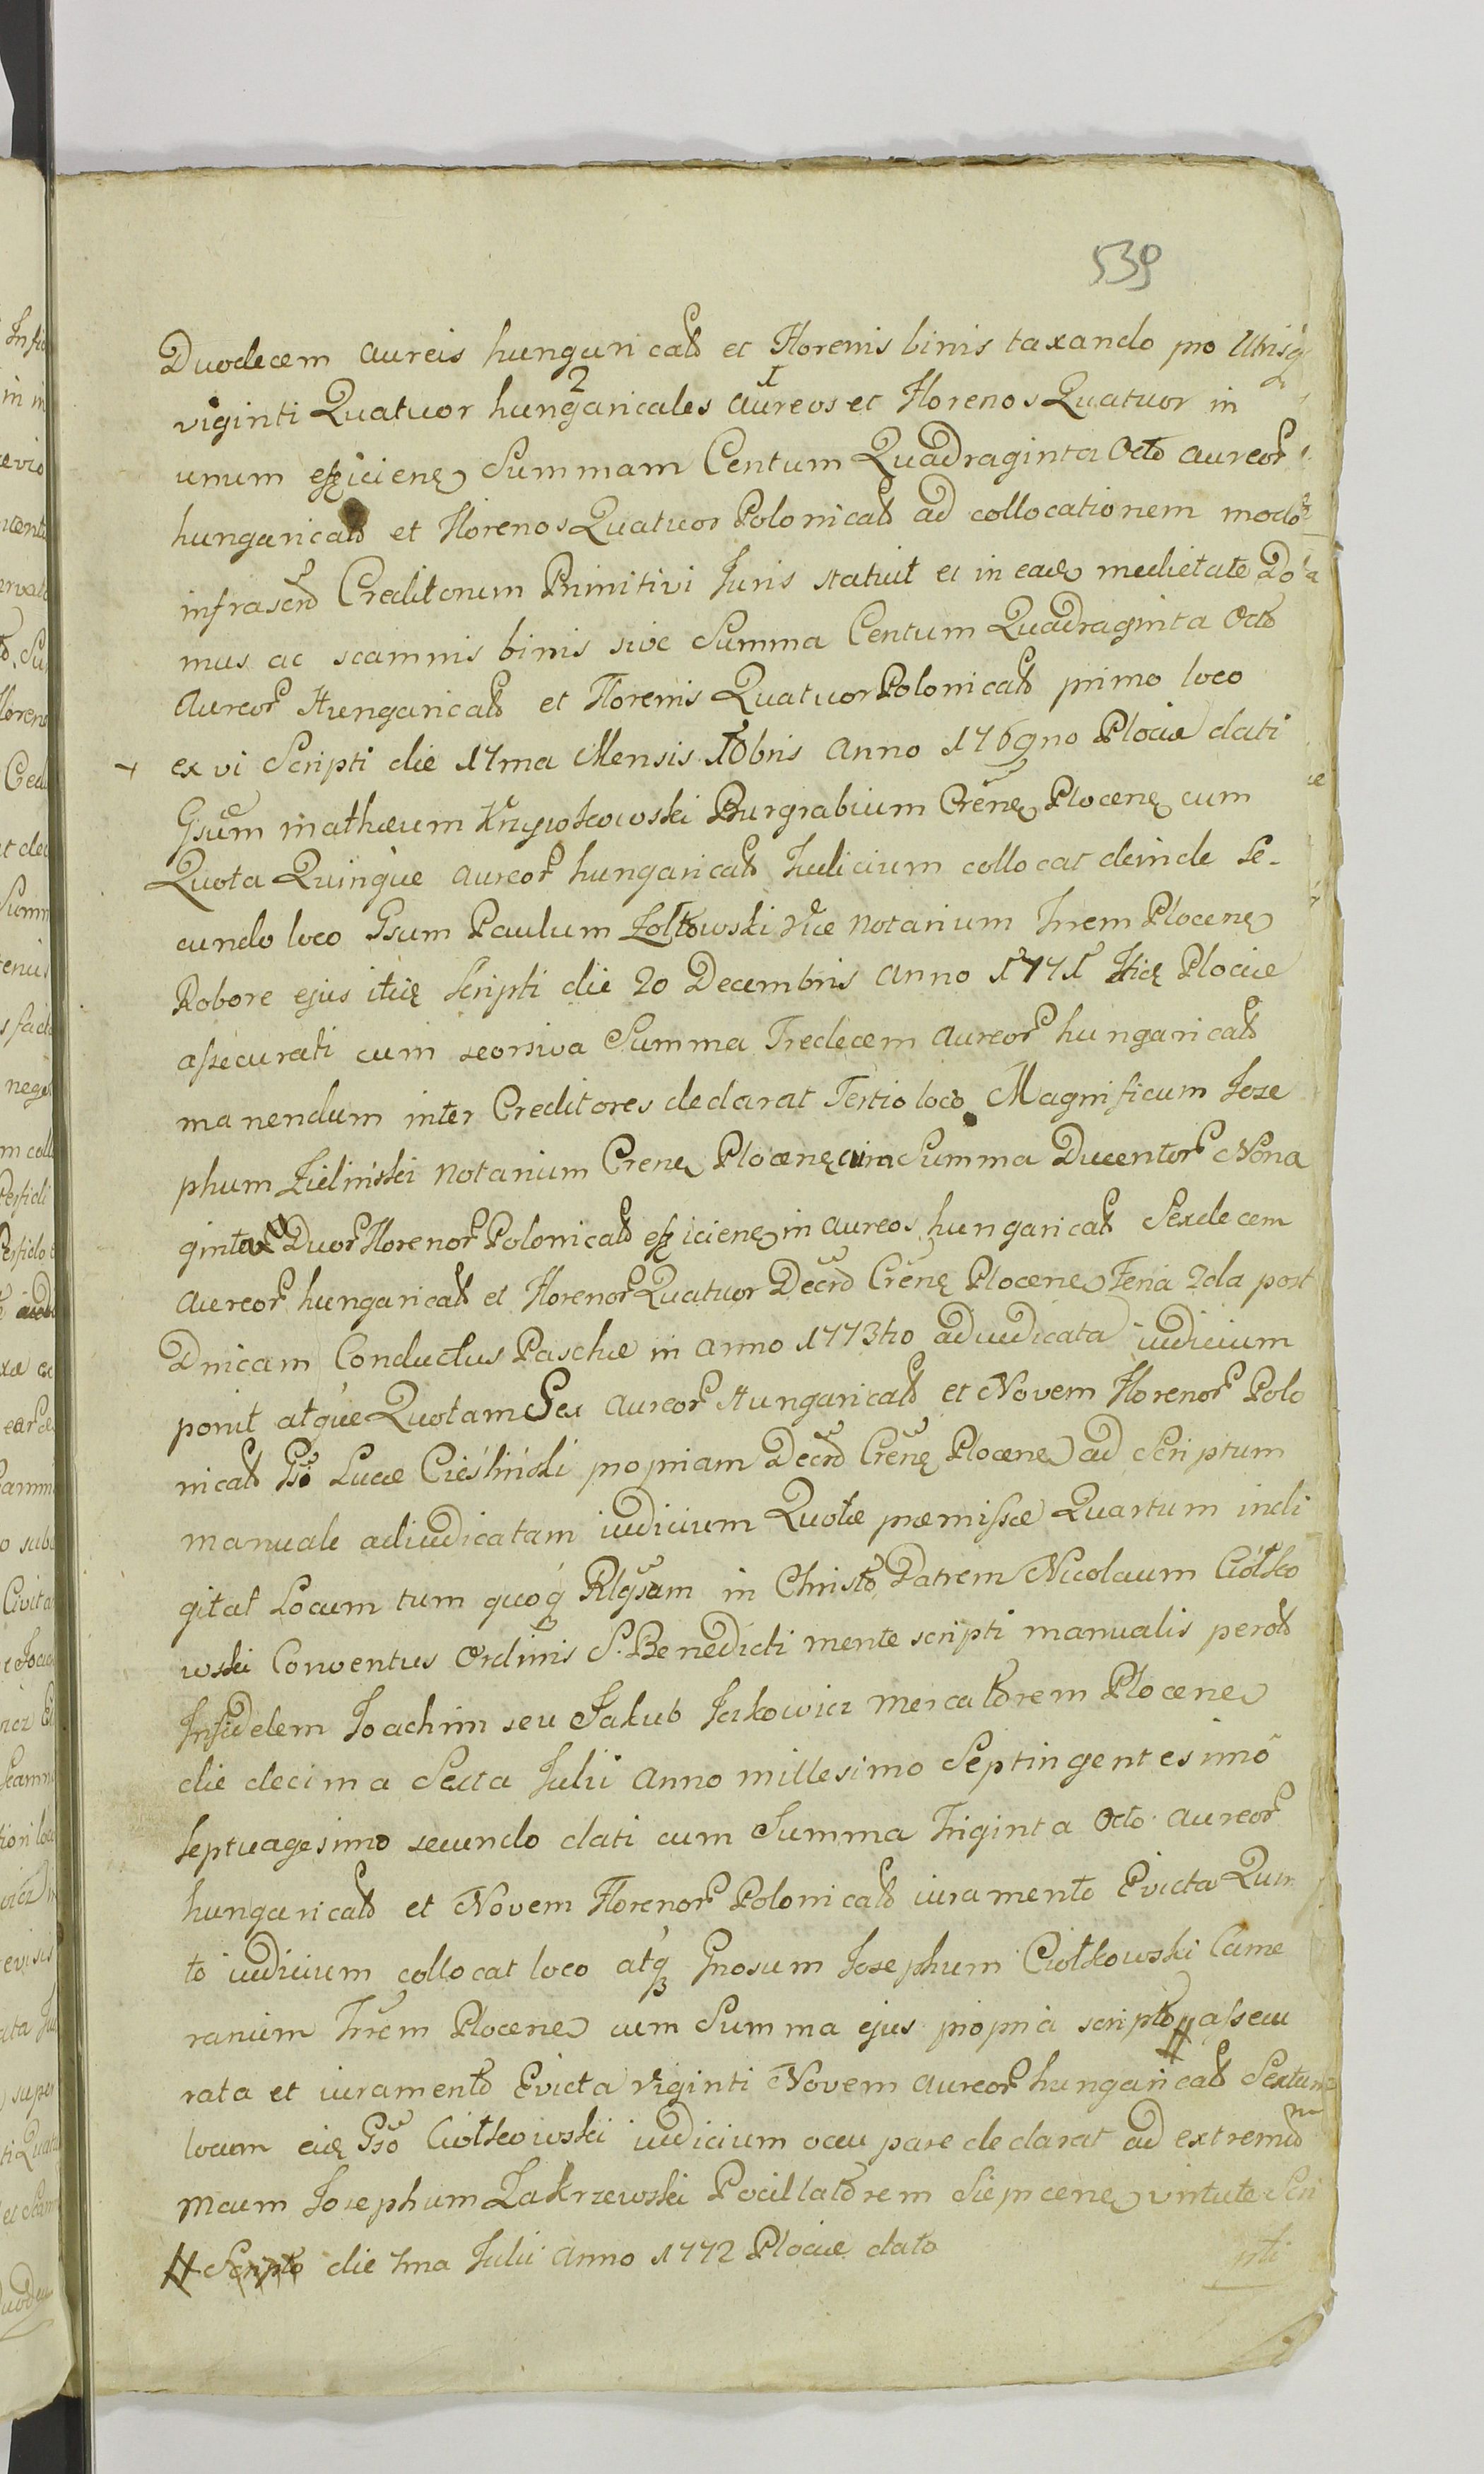 539
Duodecem aureis hungaricalb et Florenis binis taxando pro Utrisq
viginti Quatuor hungaricales aureos et Florenos Quatuor in
unum efficiens Summam Centum Quadraginta Octo aureor
hungaricalb et Florenos Quatuor Polonicalb ad collocationem modo
infrascro Creditorum Primitivi Juris statuit et in eade medietate Do
mus ac scamnis binis sive Summa Centum Quadraginta Octo
Aureor Hungaricalb et Florenis Quatuor Polonicalb primo loco
ex vi Scripti die 17ma Mensis 10bris Anno 1769no Plociæ dati
Gsum mathæum Krzywkowski Burgrabium Crēne Plocene cum
Quota Quinque aureor hungaricalb Judicium collocat deinde Se-
cundo loco Gsum Paulum Żółtowski Vice notarium Trrem Plocene
Robore ejus itie Scripti die 20 Decembris Anno 1771 Itie Plociæ
assecurati cum seorsiva Summa Tredecem aureor hungaricalb
manendum inter Creditores declarat Tertio loco Magnificum Jose
phum Zieliński notarium Crene Plocene cum Summa Ducentor Nona
ginta Duor Florenor Polonicalb efficiens in aureos hungaricalb Sexdecem
aureor hungaricalb et Florenor Quatuor Decro Crēne Plocene Feria 2da post
Dnicam Conductus Paschæ in Anno 1773tio adiudicata iudicium
ponit atque Quotam Sex aureor Hungaricalb et Novem Florenor Polo
nicalb Gso Lucæ Cieśliński propriam Decro Crēne Plocene ad Scriptum
manuale adiudicatam iudicium Quotæ præmissæ Quartum indi
gitat Locum tum quoq Rlgsum in Christo Patrem Nicolaum Ciółko
wski Conventus Ordinis S. Benedicti mente scripti manualis perolb
Infidelem Joachim seu Jakub Jckowicz mercatorem Plocene
die decima Sexta Julii Anno millesimo Septingentesimo
Septuagesimo secundo dati cum Summa Triginta Octo aureor
hungaricalb et Novem Florenor Polonicalb iuramento Evicta Quin
to iudicium collocat loco atq Gnosum Josephum Ciołkowski Came
rarium Trrem Plocene cum Summa ejus propria scripto # assecu
rata et iuramento Evicta viginti Novem aureor hungaricalb Sextum
locum eie Gso Ciołkowski iudicium occupare declarat ad extremum
Mcum Josephum Zakrzewski Pocillatorem Sieprcene virtute Scri
# Scripto die 7ma Julii Anno 1772 Plociæ dato
pti